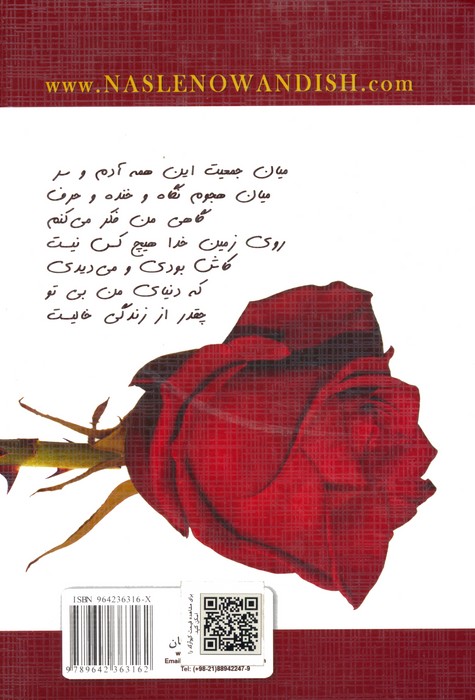 www.NASLENOWANDISH.com
میان جمعیت این همه آدم و سر
میان هجوم نگاه و خنده و حرف
گاهی من فکر می‌کنم
روی زمین خدا هیچ کس نیست
کاش بودی و می‌دیدی
که دنیای من بی تو
چقدر از زندگی خالیست
ISBN 964236316-X
9 789642 363162
برای مشاهده قیمت
اسکن کنید
Email
Tel: (+98-21)88942247-9